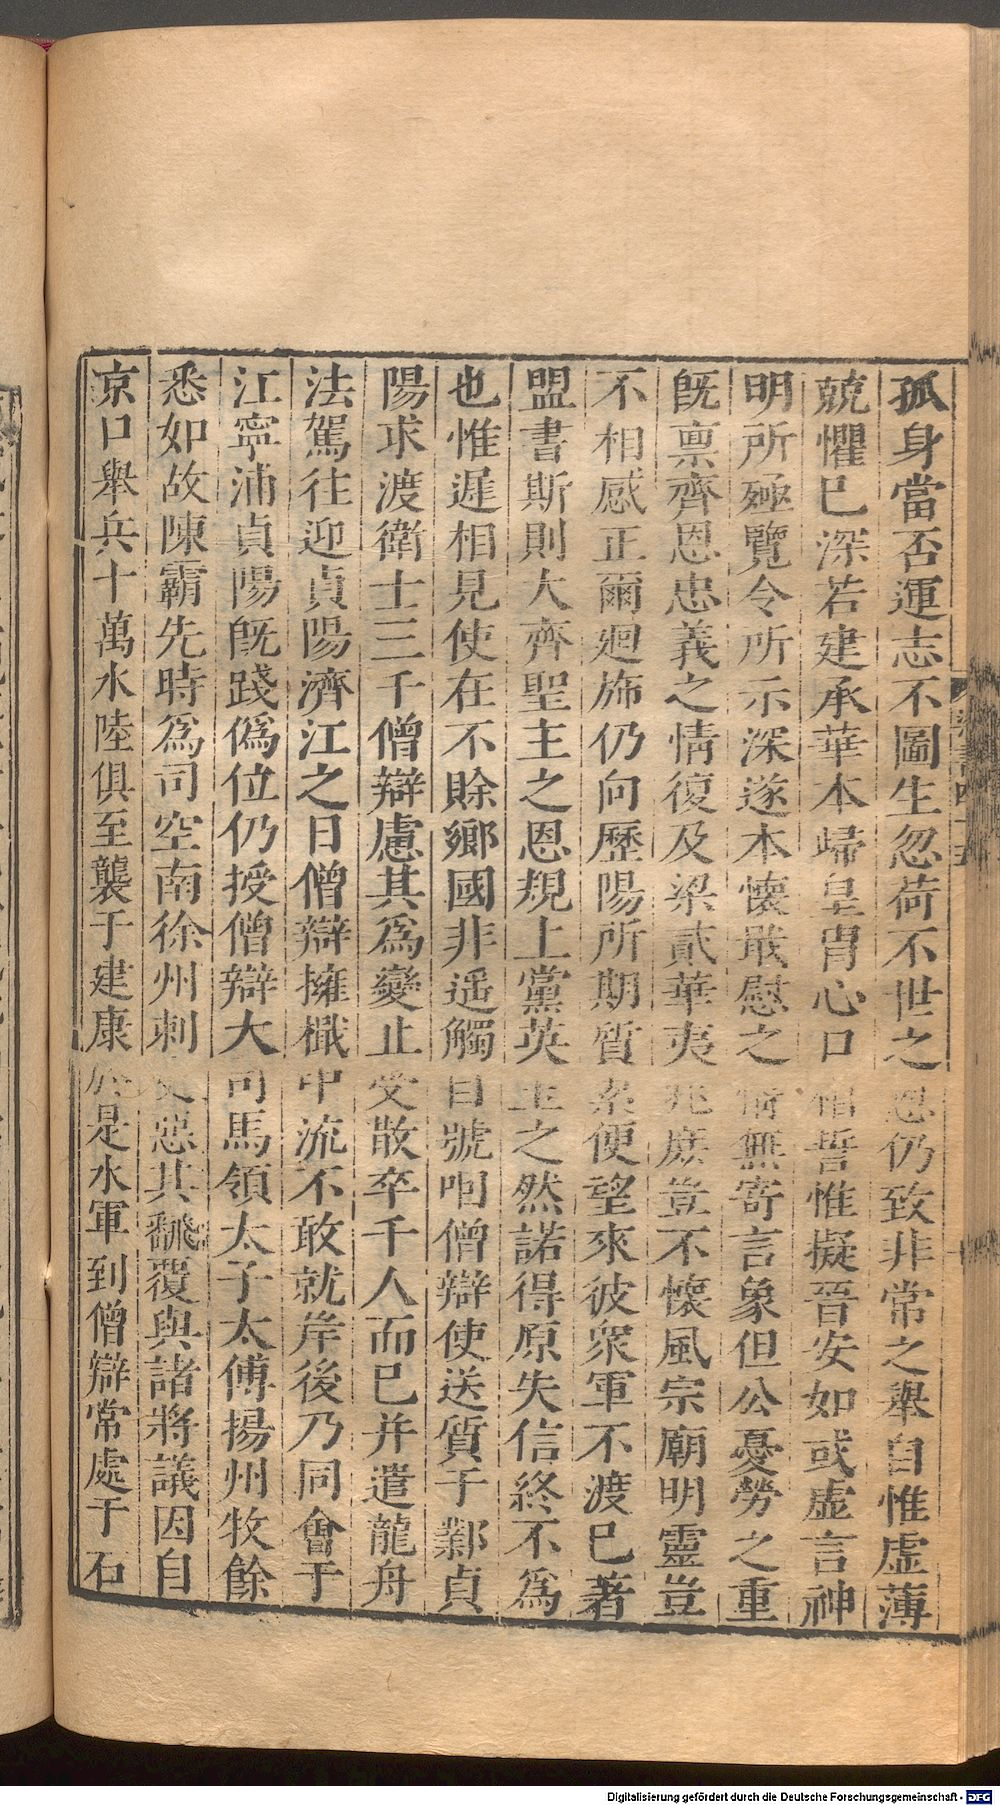 孤身當否運志不圖生忽荷不世之恩仍致非常之舉自惟虛薄
兢懼已深若建承華本歸皇胄心口相誓惟擬晉安如或虛言神
明所殛覽令所示深遂本懷戢慰之情無寄言象但公憂勞之重
旣禀齊恩忠義之情復及梁貳華夷兆庶豈不懷風宗廟明靈豈
不相感正爾廻斾仍向歷陽所期質累便望來彼衆軍不渡已著
盟書斯則大齊聖主之恩規上黨英王之然諾得原失信終不爲
也惟遲相見使在不賒鄉國非遥觸目號咽僧辯使送質于鄴貞
陽求渡衛士三千僧辯慮其爲變止受散卒千人而已并遣龍舟
法駕往迎貞陽濟江之日僧辯擁檝中流不敢就岸後乃同會于
江寧浦貞陽旣踐僞位仍授僧辯大司馬領太子太傅揚州牧餘
悉如故陳霸先時爲司空南徐州刺史惡其飜覆與諸將議因自
京口舉兵十萬水陸俱至襲于建康於是水軍到僧辯常處于石
Digitalisierung gefördert durch die Deutsche Forschungsgemeinschaft - DFG